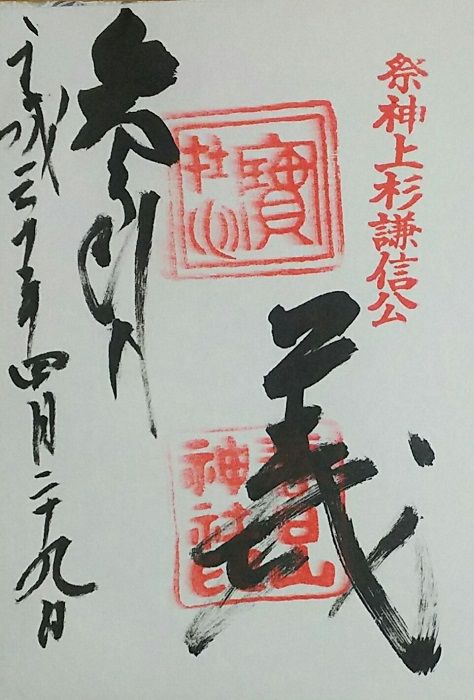 祭神上杉謙信公
寶
在心
義
春日山
神社印
参拝
平成三十年四月二十九日